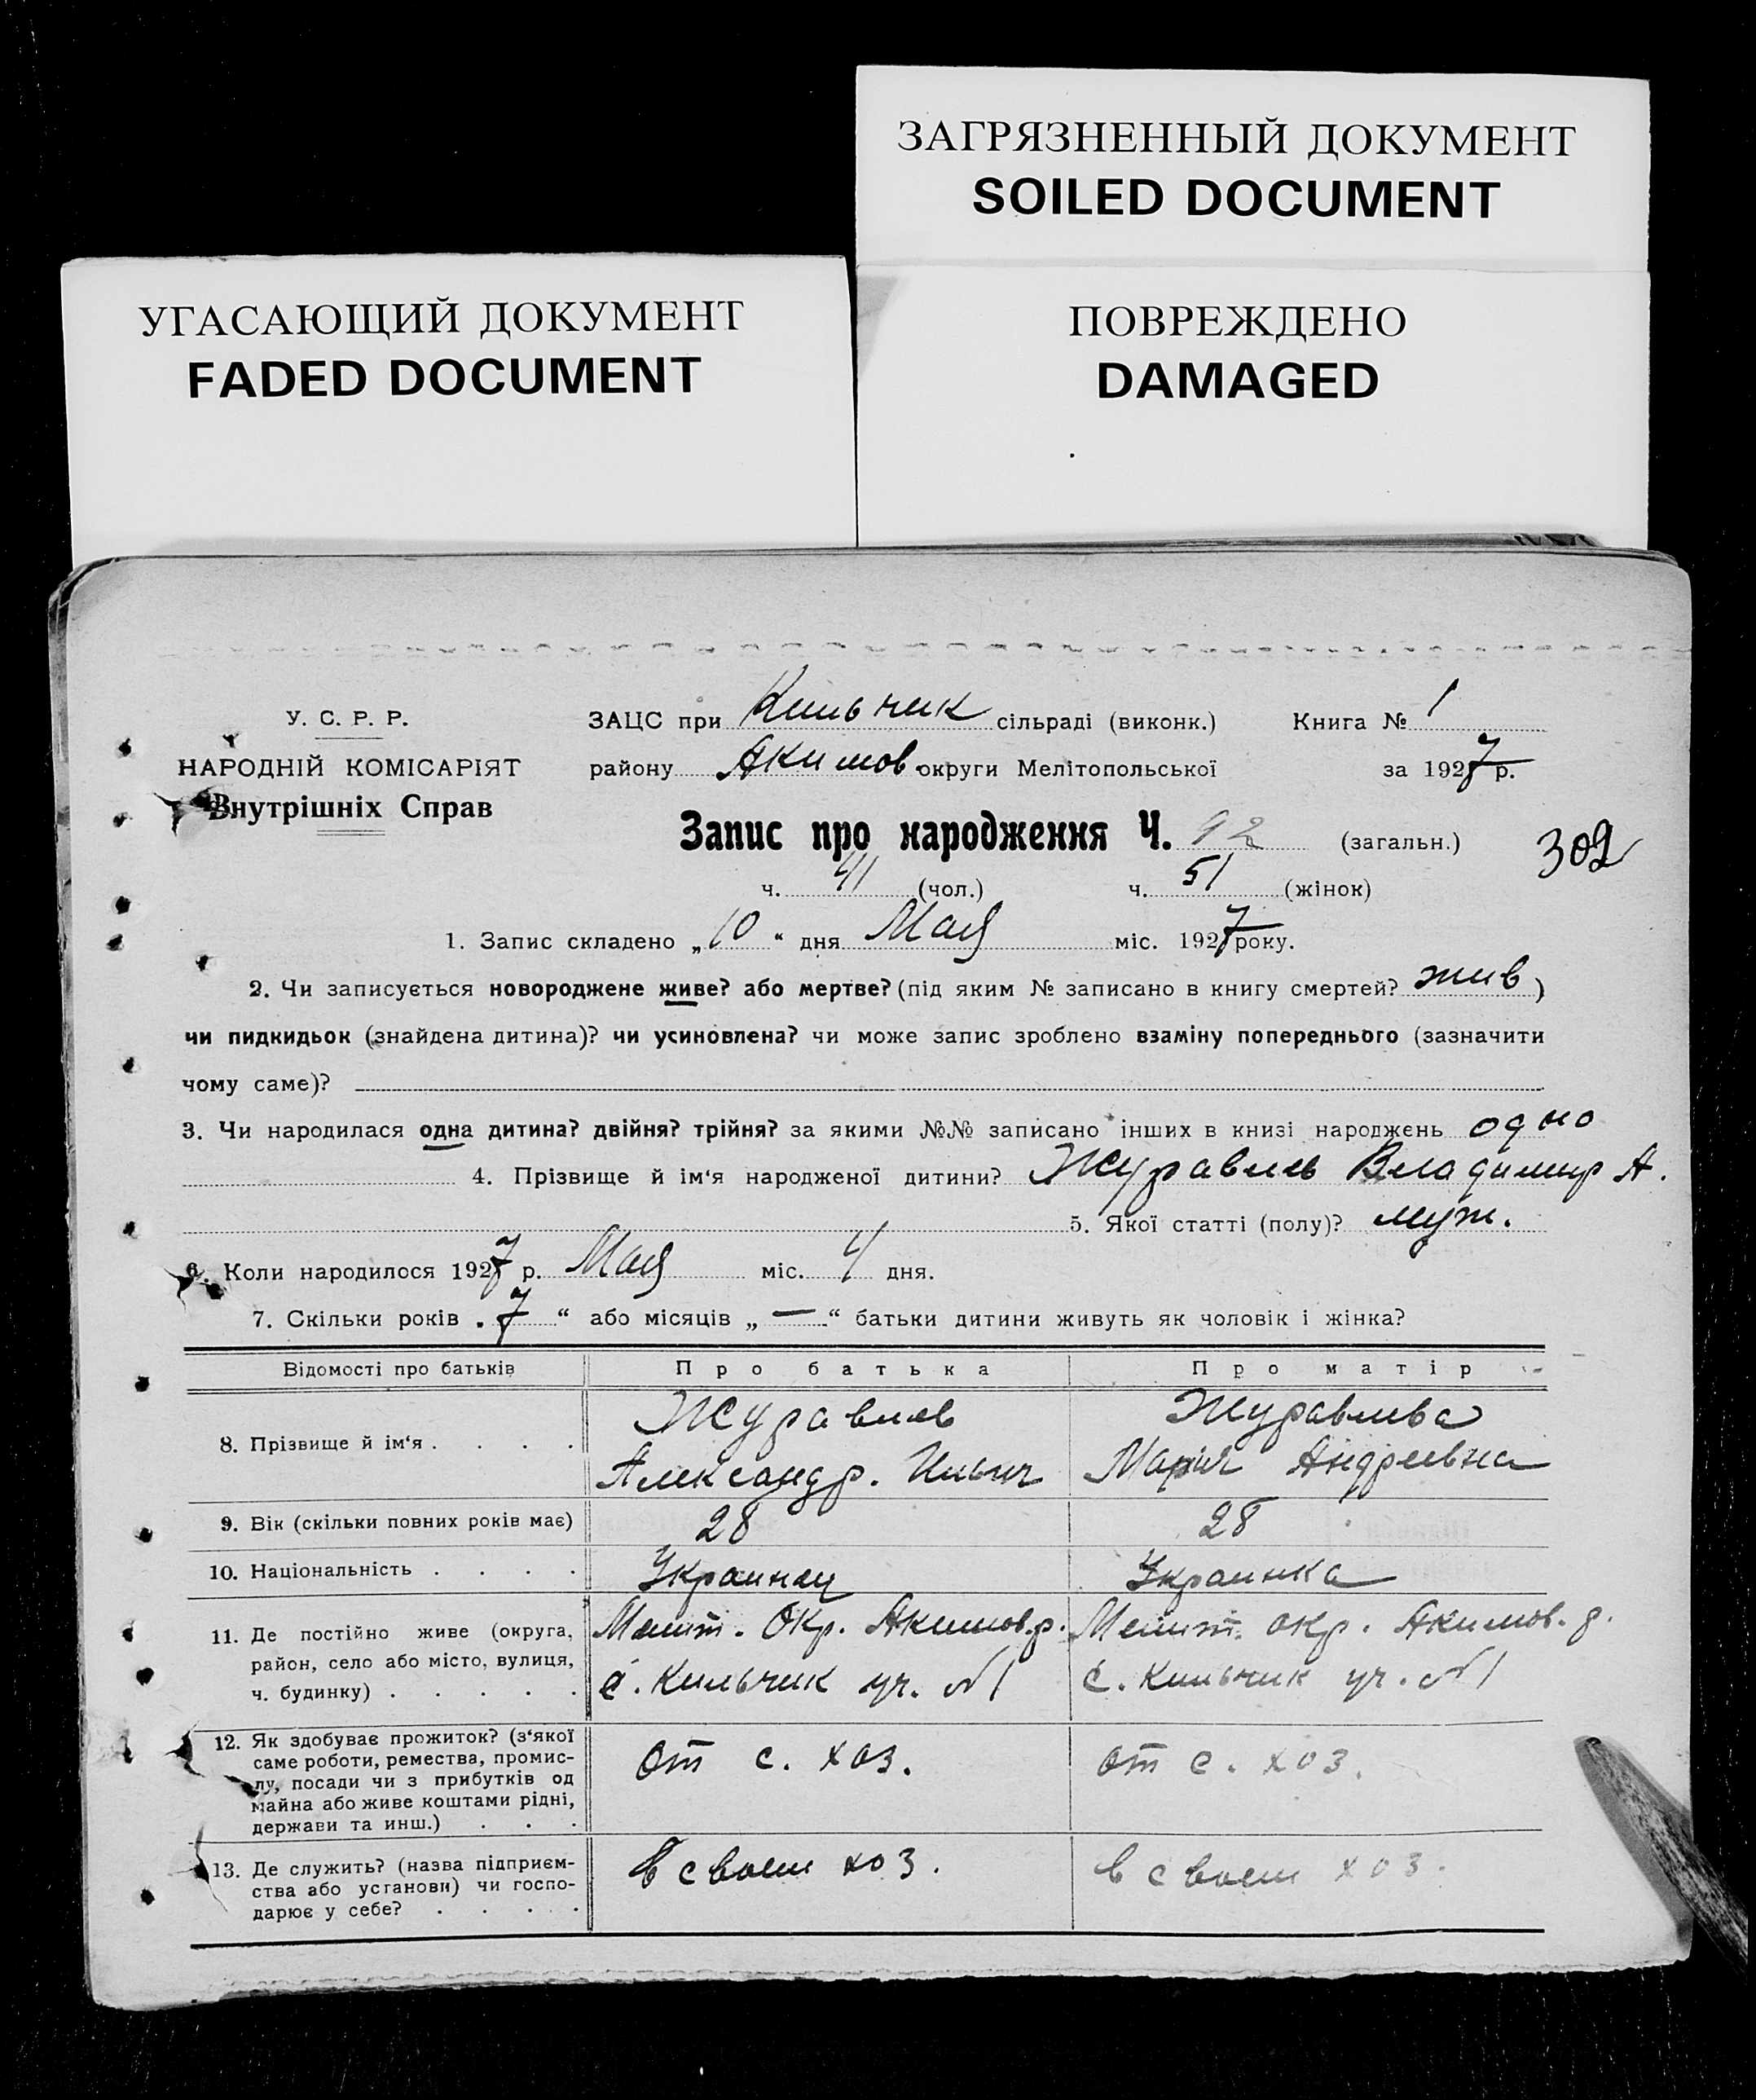 ЗАГРЯЗНЕННЫЙ ДОКУМЕНТ
SOILED DOCUMENT
УГАСАЮЩИЙ ДОКУМЕНТ
FADED DOCUMENT
ПОВРЕЖДЕНО
DAMAGED
У. С. Р. Р.
НАРОДНІЙ КОМІСАРІЯТ
Внутрішніх Справ
ЗАЦС при Кильчик сільраді (виконк.) Книга № 1
району Акимов округи Мелітопольської за 1927 р.
Запис про народження Ч. 92 (загальн.)
302
ч. 41 (чол.) ч. 51 (жінок)
1. Запис складено „10“ дня Мая міс. 1927 року.
2. Чи записується новороджене живе? або мертве? (під яким № записано в книгу смертей? жив )
чи пидкидьок (знайдена дитина)? чи усиновлена? чи може запис зроблено взаміну попереднього (зазначити
чому саме)?
3. Чи народилася одна дитина? двійня? трійня? за якими №№ записано інших в книзі народжень одно
4. Прізвище й ім‘я народженої дитини? Журавлев Владимир А.
5. Якої статті (полу)? муж.
6. Коли народилося 1927 р. Мая міс. 4 дня.
7. Скільки років „7“ або місяців „—“ батьки дитини живуть як чоловік і жінка?
Відомості про батьків Про батька Про матір
8. Прізвище й ім‘я . . . . Журавлев Александр. Ильич Журавлева Мария Андреевна
9. Вік (скільки повних років має) 28 28
10. Національність . . . . Украинец Украинка
11. Де постійно живе (округа,
район, село або місто, вулиця,
ч. будинку) . . . . .
Мелит. Окр. Акимов. р.
с. Кильчик уч. №1
Мелит. окр. Акимов. р.
с. Кильчик уч. №1
12. Як здобуває прожиток? (з‘якої
саме роботи, ремества, промис-
лу, посади чи з прибутків од
майна або живе коштами рідні,
держави та инш.) . . .
От с. хоз.
от с. хоз.
13. Де служить? (назва підприєм-
ства або установи) чи госпо-
дарює у себе? . . . . .
В своем хоз.
в своем хоз.